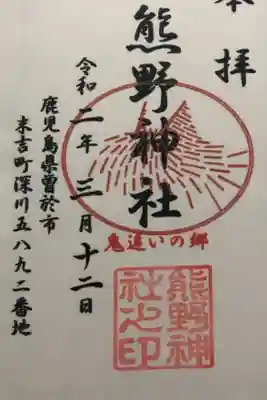 奉拝
熊野神社
令和二年三月十二日
鹿児島県曽於市
末吉町深川五八九二番地
鬼追いの郷
熊野神
社之印